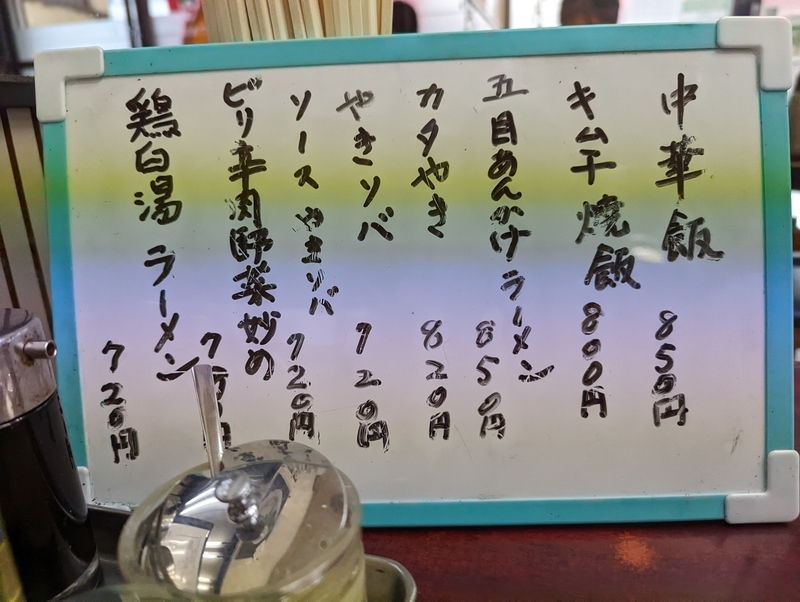 中華飯 850円
キムチ焼飯 800円
五目あんかけラーメン 850円
カタやき 820円
やきソバ 720円
ソースやきソバ 720円
ピリ辛肉野菜妙め
鶏白湯ラーメン 720円